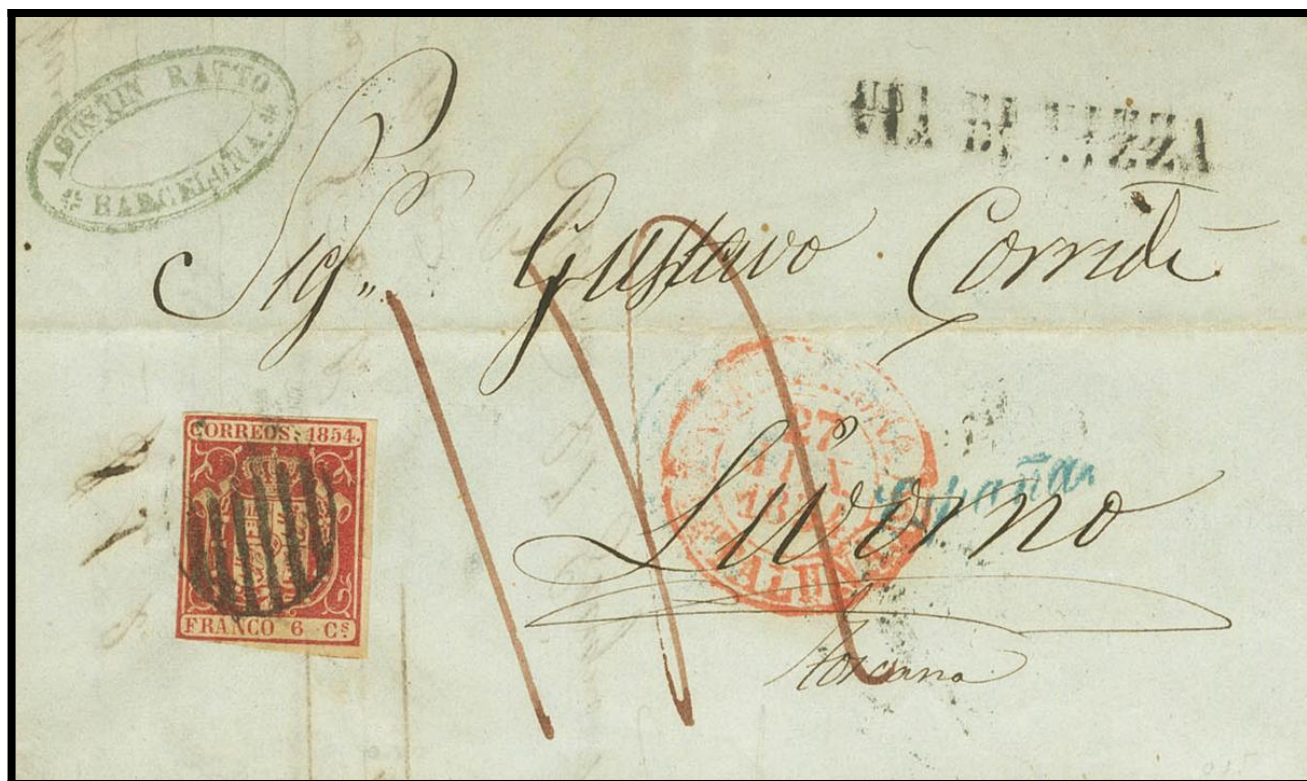 AGUSTIN RATTO
BARCELONA.
VIA DI NIZZA
Sigr. Gustavo Corridi
CORREOS. 1854.
27
España.
Livorno
FRANCO 6 Cs.
Toscana